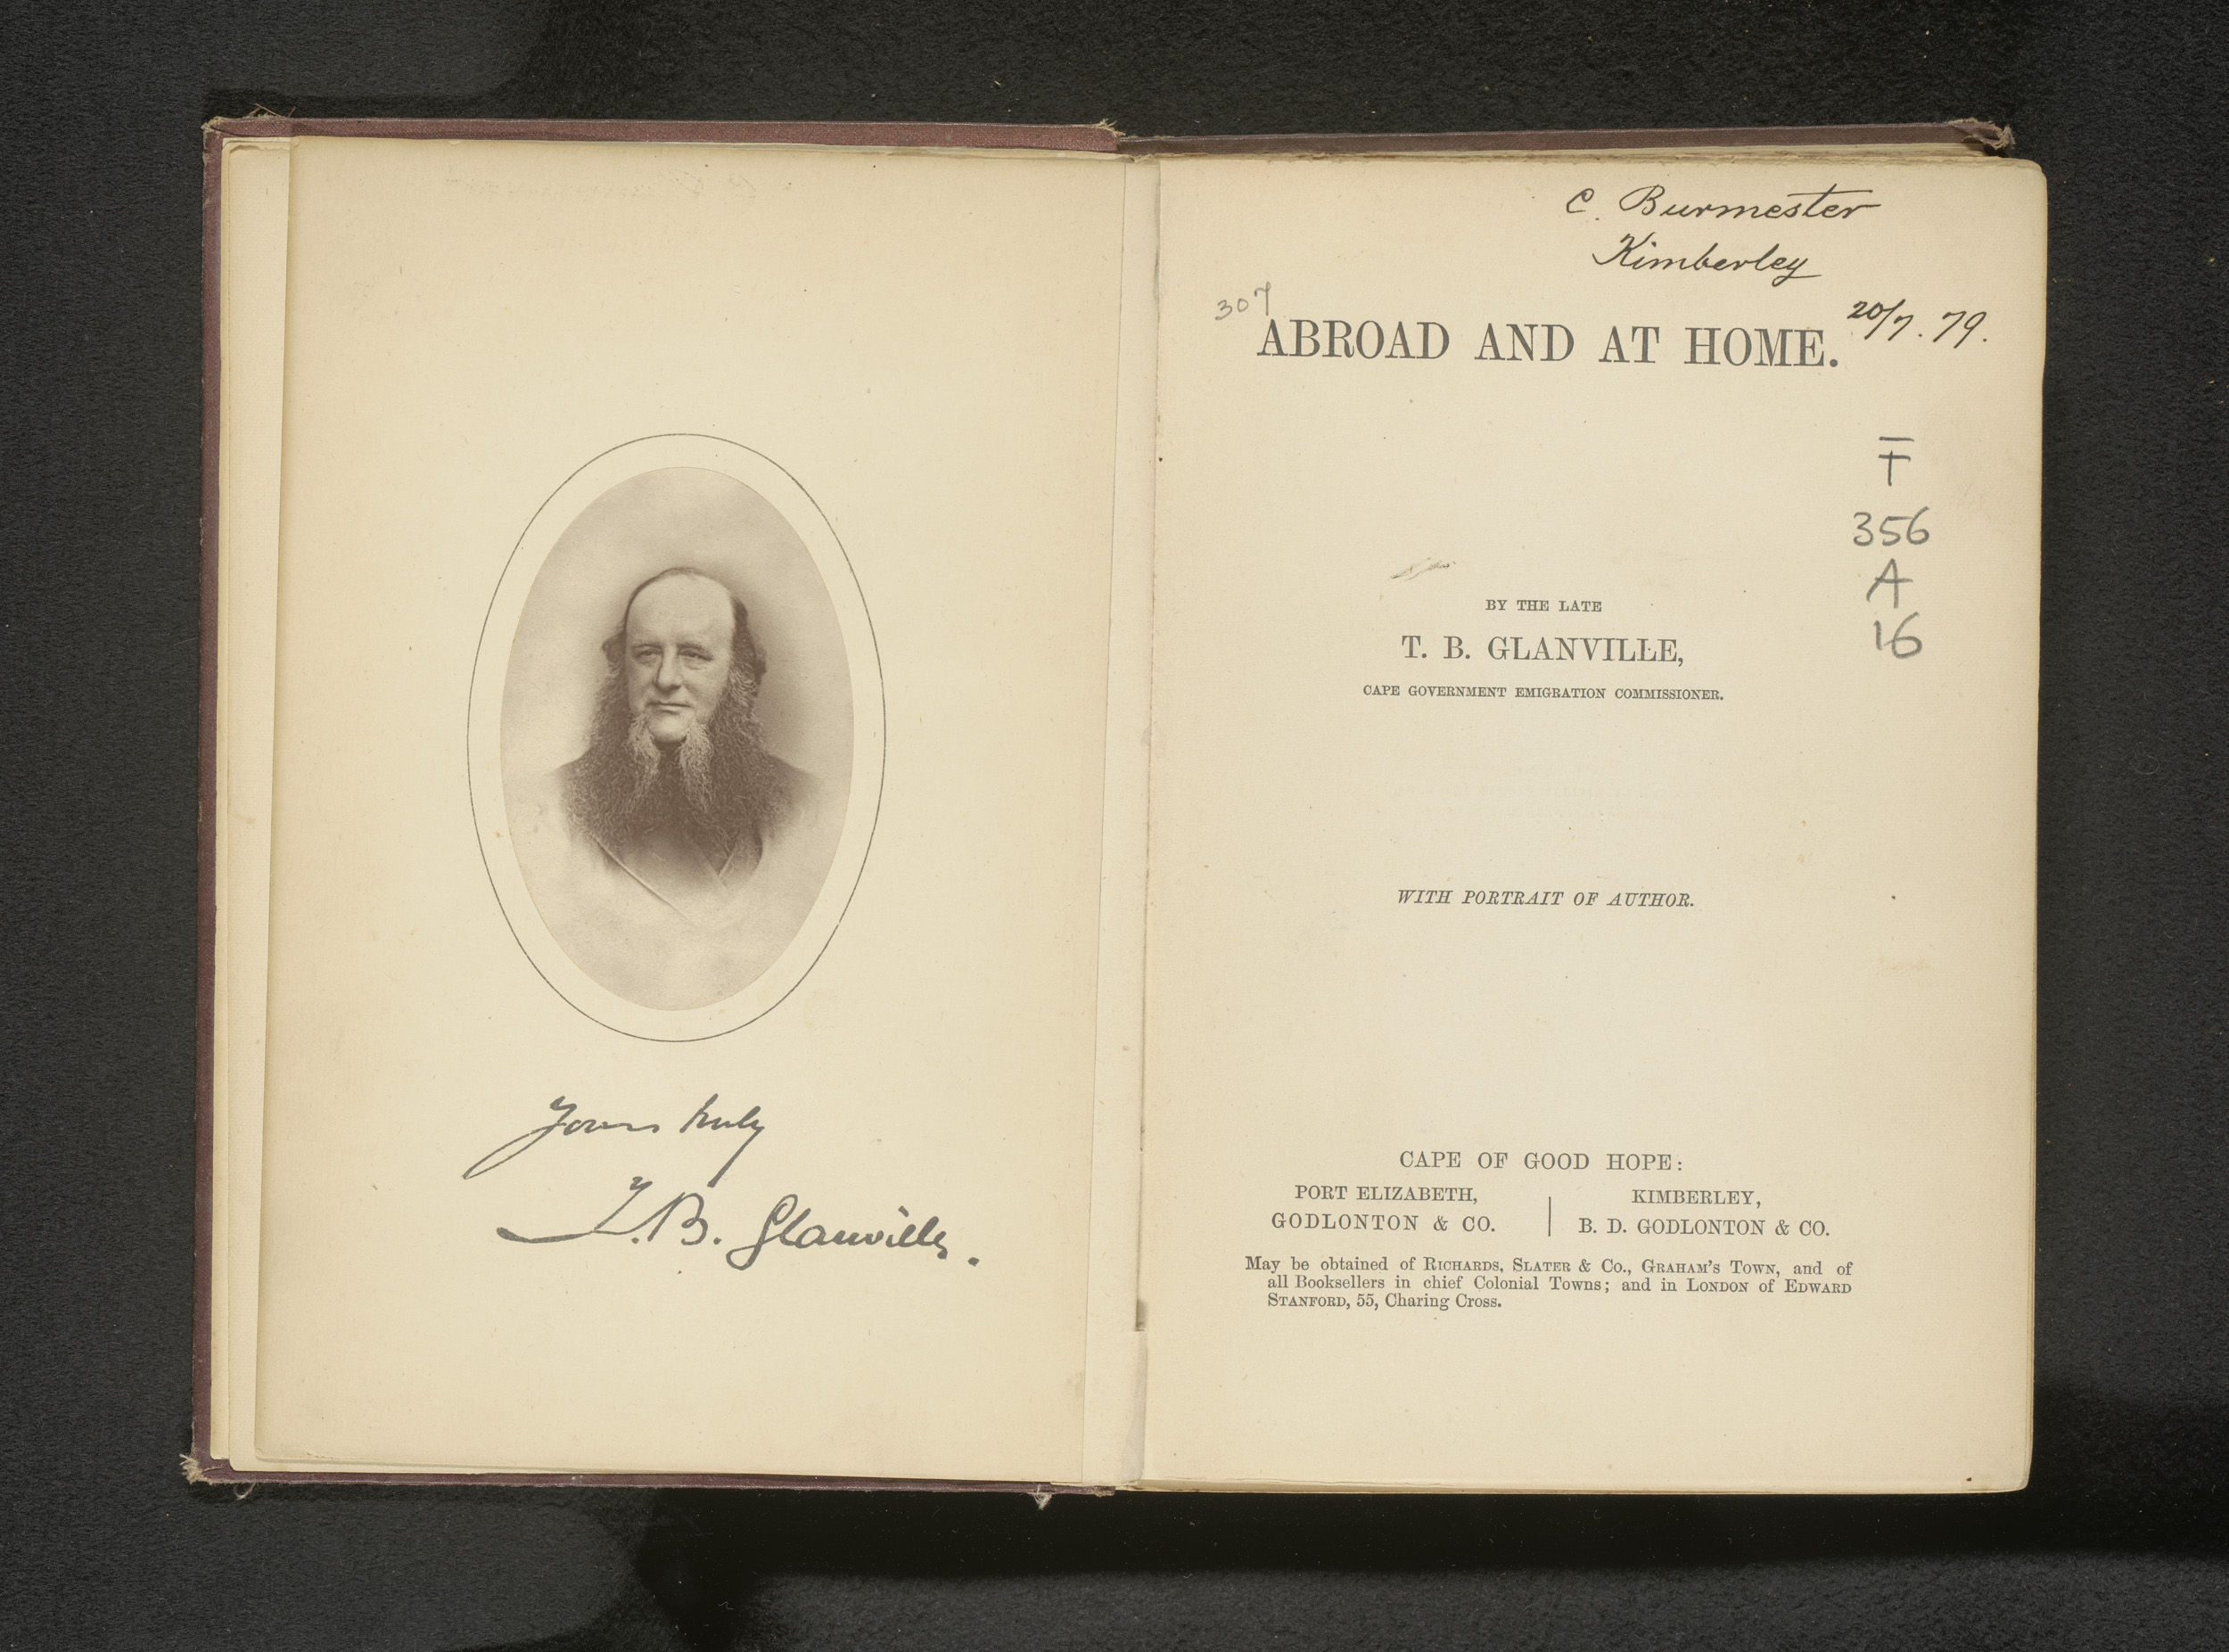 Yours truly
T. B. Glanville.
C. Burmester
Kimberley
20/7. 79.
307
ABROAD AND AT HOME.
T
356
A
16
BY THE LATE
T. B. GLANVILLE,
CAPE GOVERNMENT EMIGRATION COMMISSIONER.
WITH PORTRAIT OF AUTHOR.
CAPE OF GOOD HOPE:
PORT ELIZABETH,
GODLONTON & CO.
KIMBERLEY,
B. D. GODLONTON & CO.
May be obtained of RICHARDS, SLATER & CO., GRAHAM'S TOWN, and of
all Booksellers in chief Colonial Towns; and in LONDON of EDWARD
STANFORD, 55, Charing Cross.